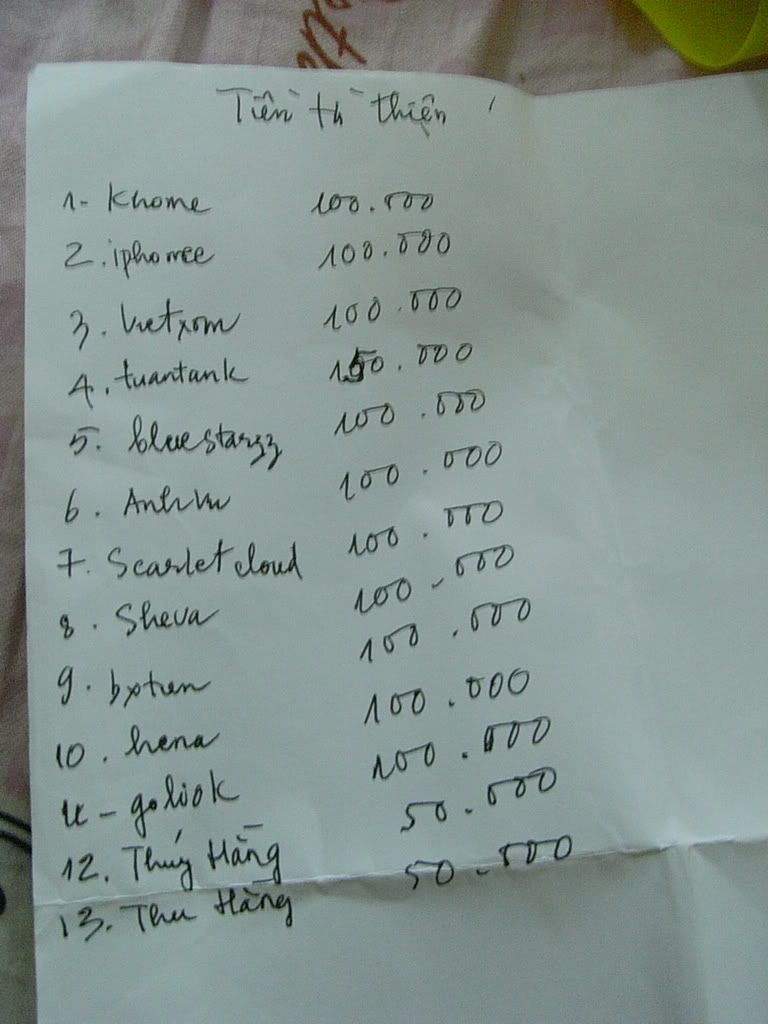 Tiền từ thiện
1- Khome 100.000
2. iphonee 100.000
3. Vietxom 100.000
4. tuantank 150.000
5. bluestarzz 100.000
6. Anhvu 100.000
7. Scarletcloud 100.000
8. Sheva 100.000
9. bxtien 100.000
10. hena 100.000
11- goliok 100.000
12. Thuý Hằng 50.000
13. Thu Hằng 50.000